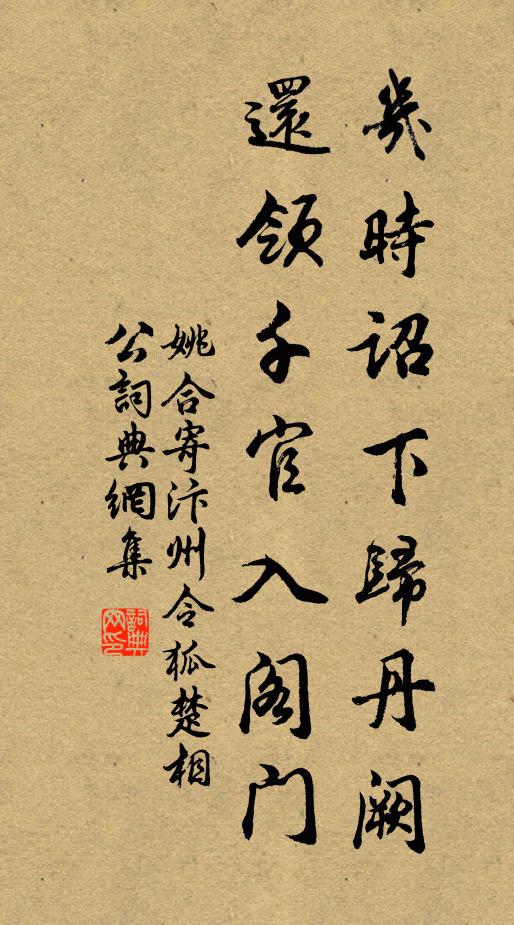 幾時詔下歸丹闕
還領千官入閣門
姚合寄汴州令狐楚相
公詞典網集
詞典
网印